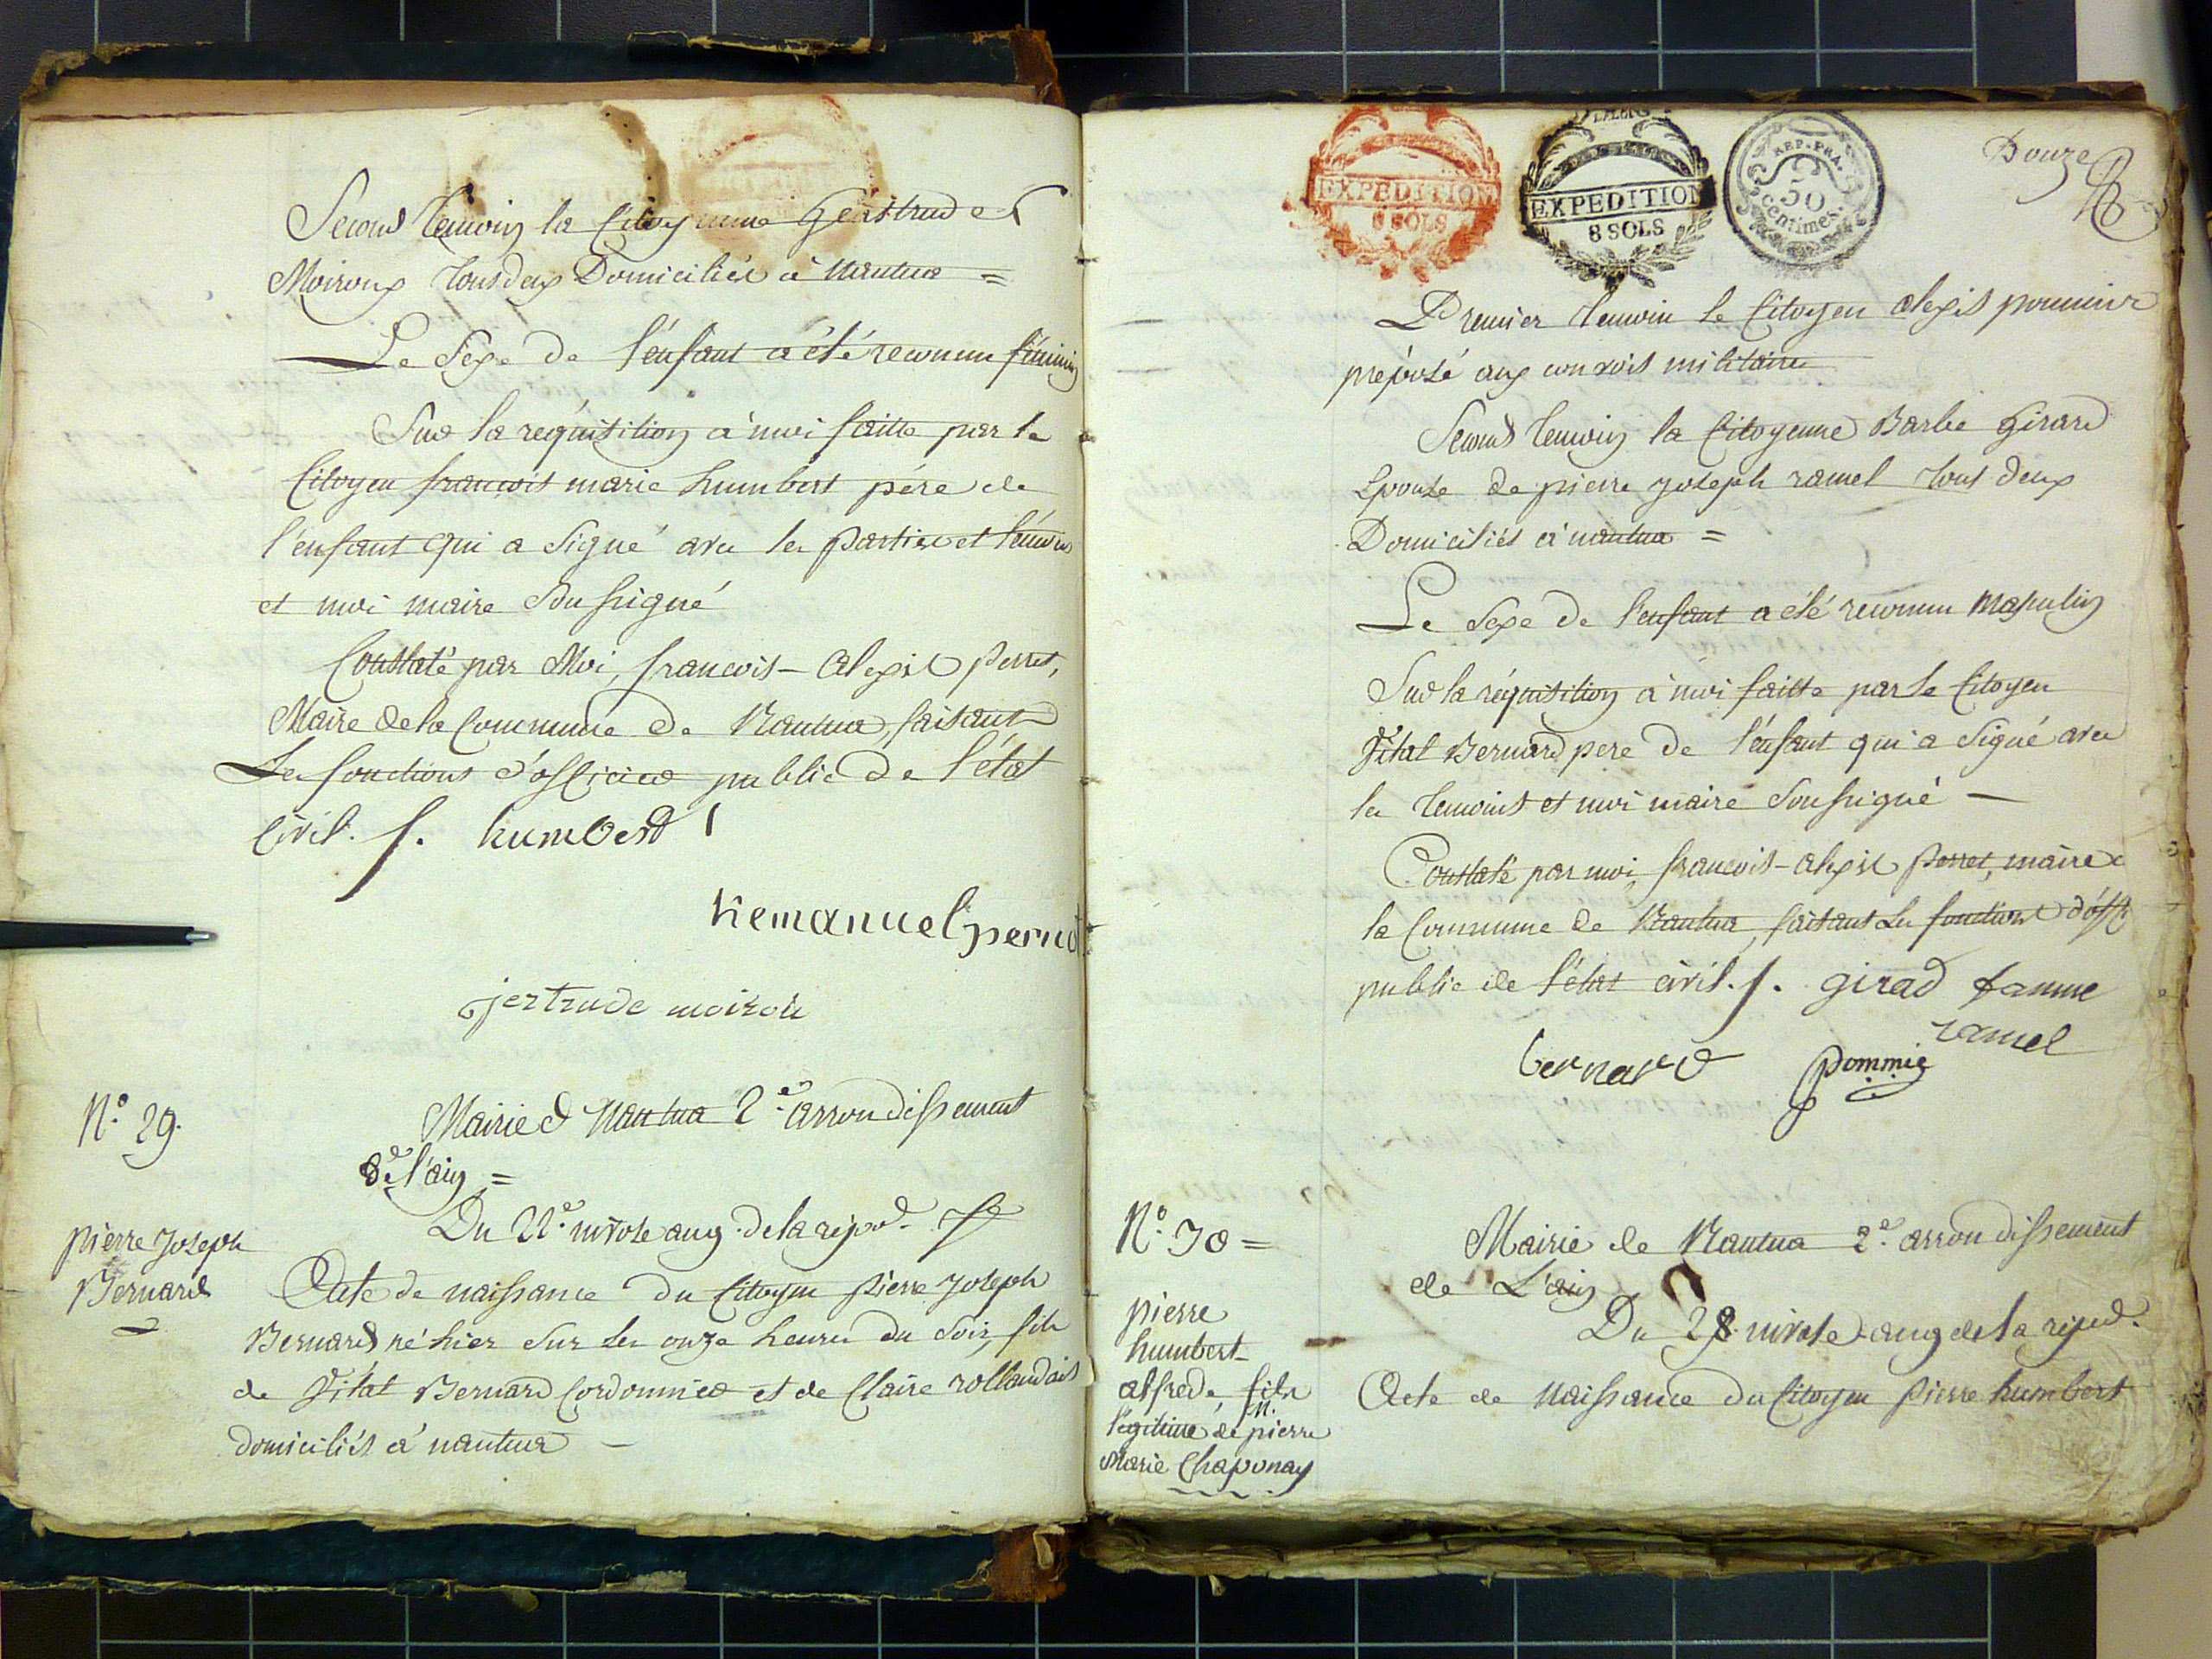 Second temoin la Citoyenne Gertrude
Moiroux tous deux Domiciliés à Nantua =
Le Sexe de l'enfant a été reconnu féminin
Sur la requisition à moi faitte par le
Citoyen françois marie humbert pére de
l'enfant qui a Signé avec les parties et témoins
et moi maire Soussigné
Constaté par Moi, francois-Alexis perret,
Maire de la Commune de Nantua, faisant
Les fonctions d'officier public de l'état
Civil. f. humbert
hemanuel pernot
jertrude moirou
N.º 29.
Mairie d Nantua 2.e arrondissement
de l'ain =
Du 22.e nivose an 9. de la repud.
pierre Joseph
Bernard
Acte de naissance du Citoyen pierre joseph
Bernard né hier Sur les onze heures du Soir, fils
de Vital Bernard Cordonnier et de Claire rollandais
domiciliés à nantua —
Douze
EXPEDITION
8 SOLS
EXPEDITION
8 SOLS
REP. FRA.
50
centimes.
Premier temoin le Citoyen alexis pommier
préposé aux convois militaires
Second temoin la Citoyenne Barbe Girard
Epouse de pierre joseph ramel tous deux
Domiciliés à nantua =
Le Sexe de l'enfant a été reconnu masculin
Sur la réquisition à moi faitte par le Citoyen
Vital Bernard pere de l'enfant qui a Signé avec
les temoins et moi maire Soussigné —
Constaté par moi, francois-alexis perret, maire
la Commune de Nantua, faisant Les fonctions d'off
public de l'état civil. f. girad famme
ramel
bernard pommie
N.º 30 =
Mairie de Nantua 2.e arrondissement
de L'ain
Du 28. nivose an 9 de la repud.
pierre
humbert
alfrede, fils
légitime de pierre
M.
Marie Chaponay
Acte de Naissance du Citoyen pierre humbert